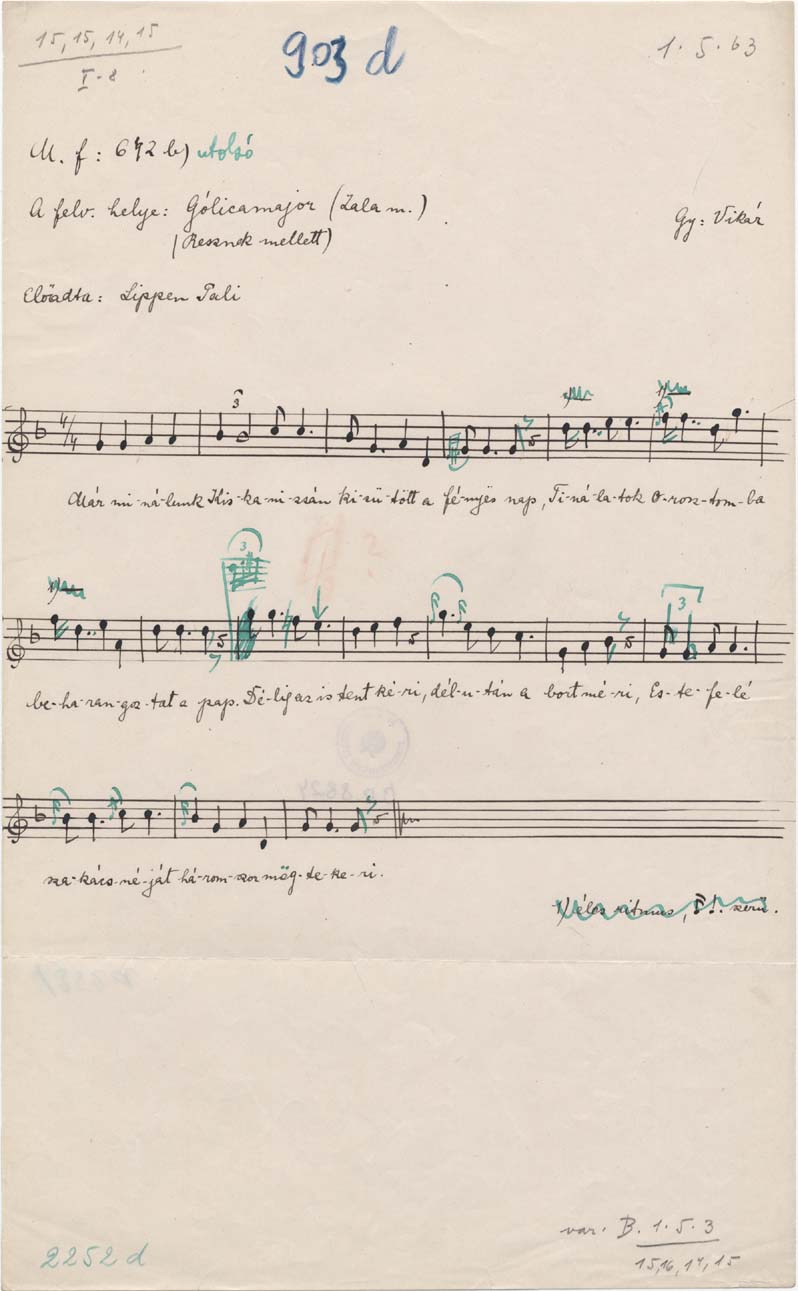 15, 15, 14, 15
I-8
903 d
1. 5. b3
M. f: 672 b) utolsó
A felv. helye: Gólicamajor (Zala m.)
(Resznek mellett)
Gy: Vikár
Előadta: Lippen Pali
4/4
3
Már mi-ná-lunk Kis-ka-ni-zsán ki-sü-tött a fé-nyës nap, Ti-ná-la-tok O-rosz-tom-ba
3
?
3
be-ha-ran-goz-tat a pap. Dé-lig az is tent ké-ri, dél-u-tán a bort mé-ri, Es-te-fe-lé
sza-kács-né-ját há-rom-szor mög-te-ke-ri.
1) éles ritmus, szerű.
2252 d
var. B. 1. 5. 3
15, 16, 14, 15